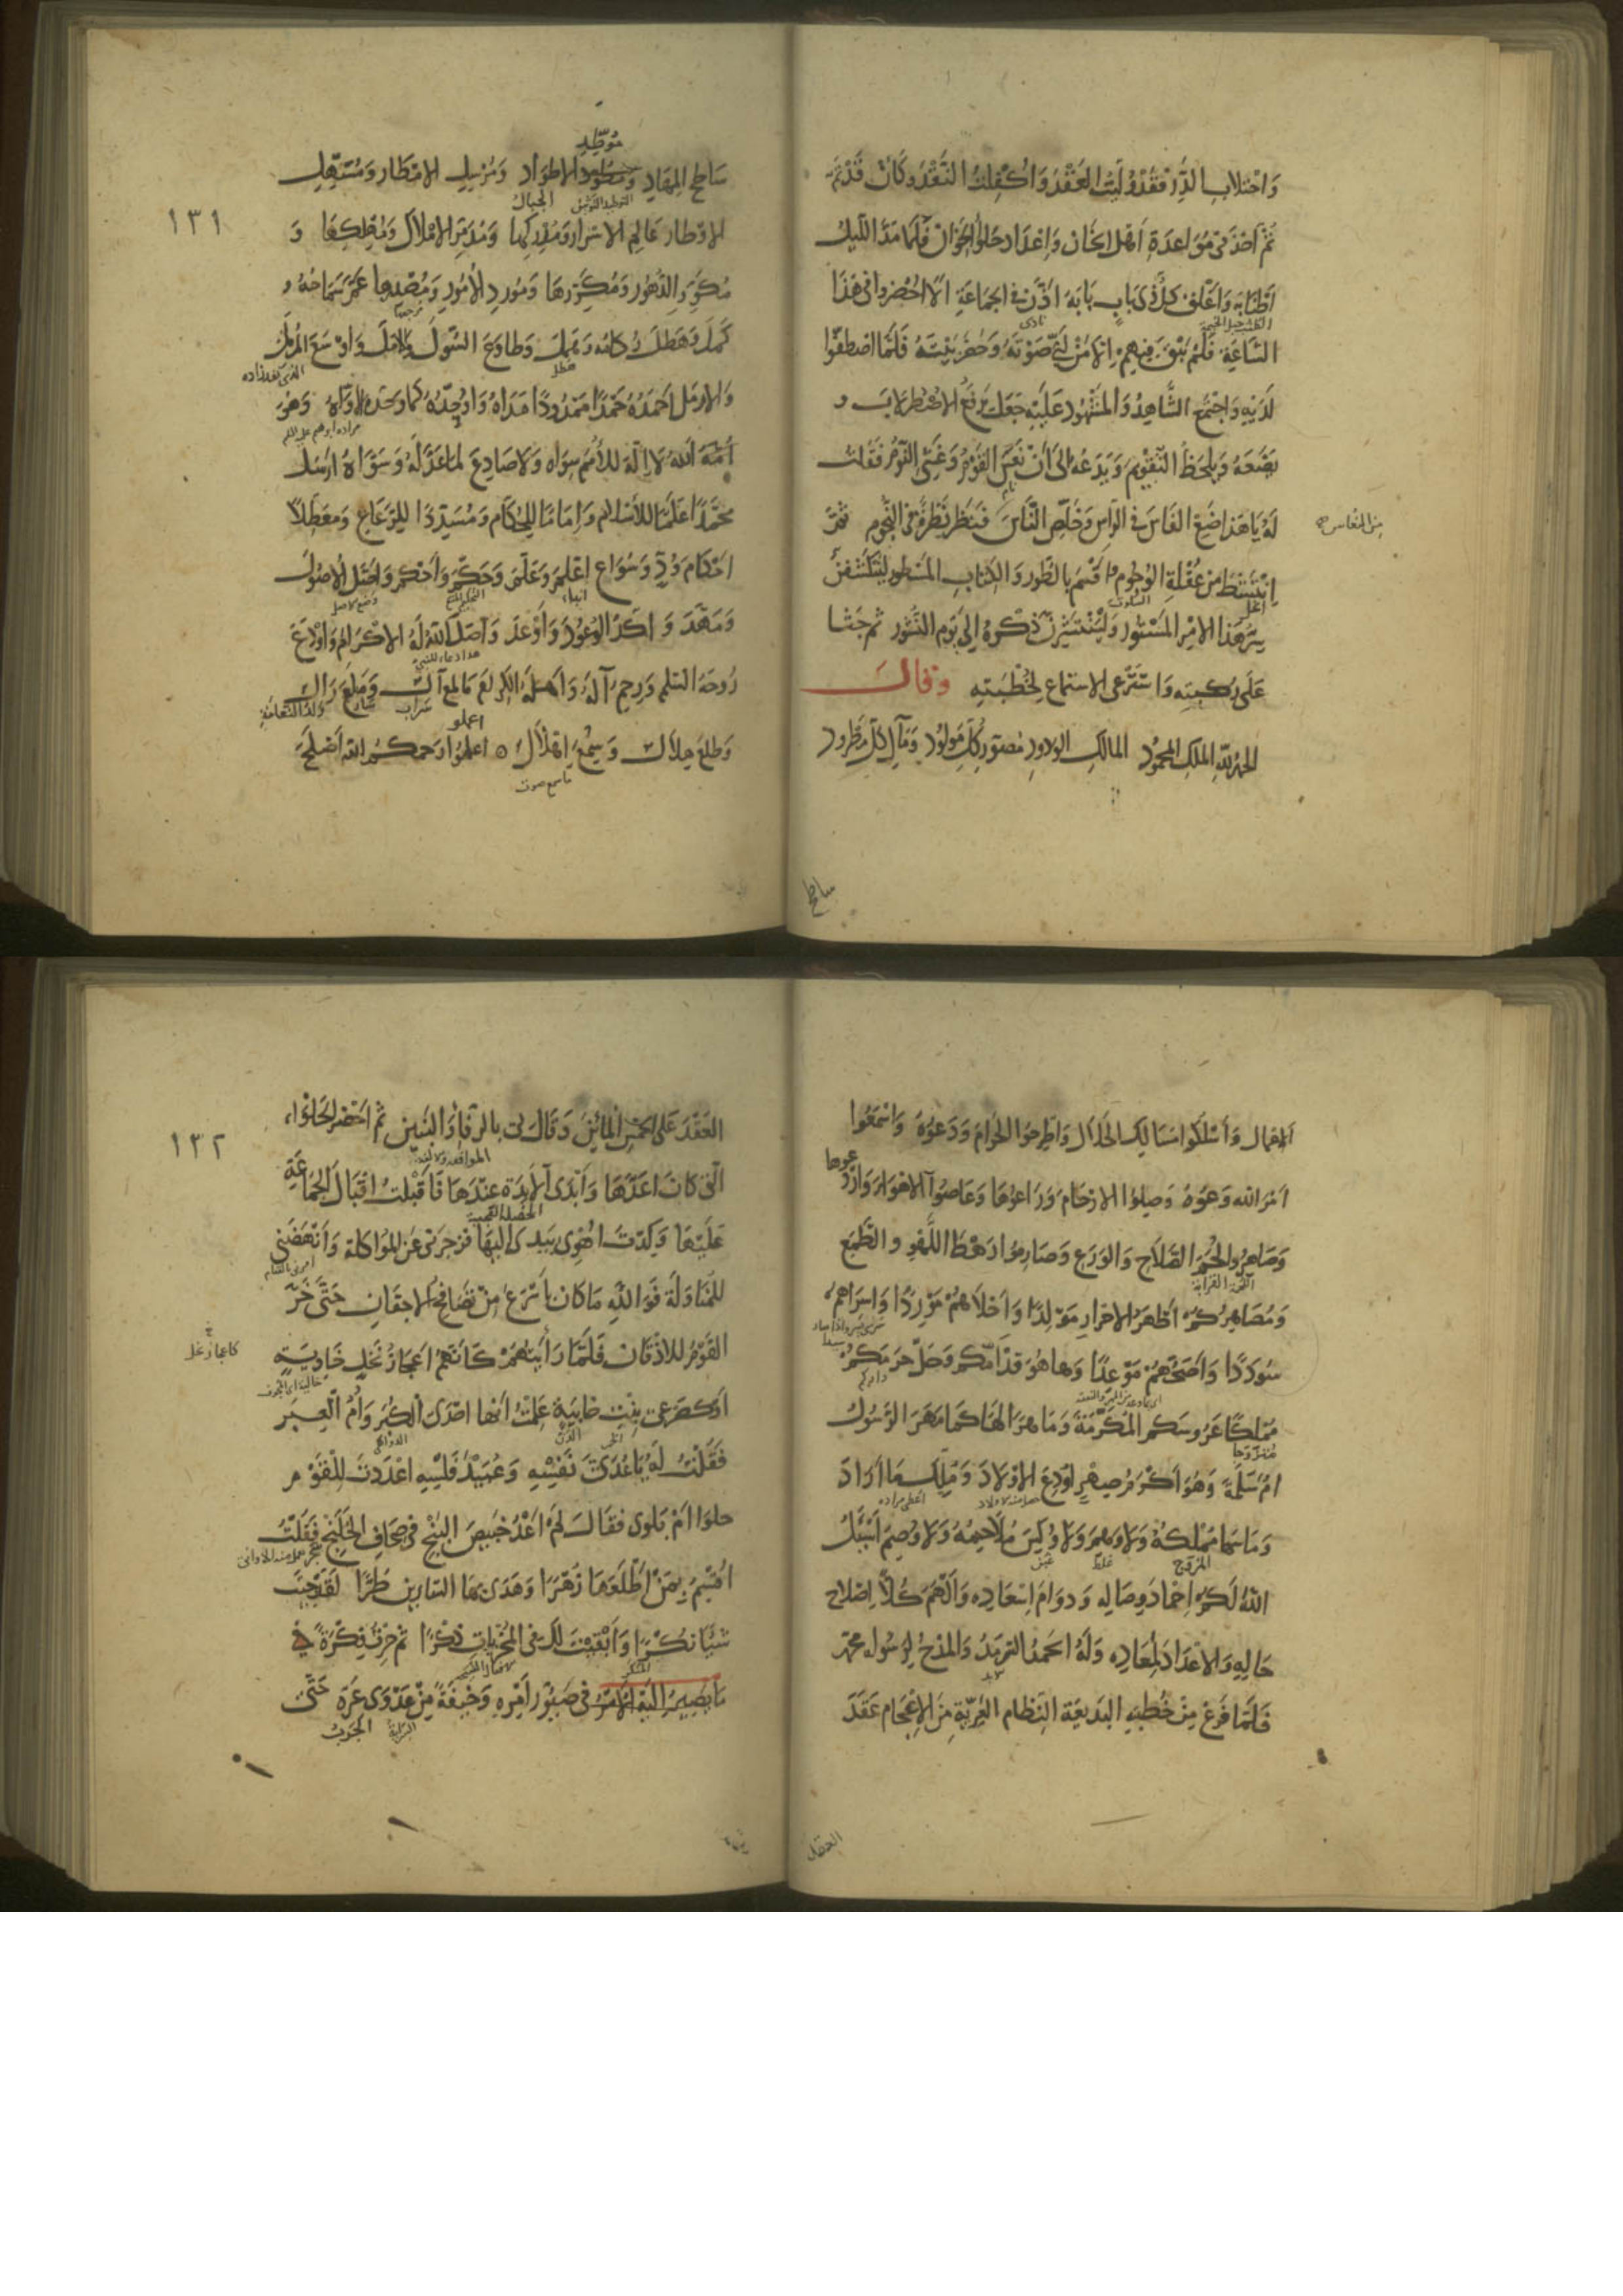 وَاحْتِلابِ الدَّرِّ فَقَدْ وُلِّيتَ العَقْدَ وَاُكْفِلْتَ النَّقْدَ وَكَانَ قَدْ تَمَّ
ثُمَّ اَخَذَ فى مُوَاعَدَةِ اَهْلِ الخَانِ وَاِعْدَادِ حَلْوَاءِ الخِوَانِ فَلَمَّا مَدَّ اللَّيْلُ
اَطْنَابَهُ وَاَغْلَقَ كلُّ ذى بَابٍ بَابَهُ اَذَّنَ فى الجَمَاعَةِ اَلَا احْضُرُوا فى هٰذَا
نادى
السَّاعَةِ فَلَمْ يَبْقَ فِيهِمْ اِلّا مَنْ لَبَّى صَوْتَهُ وَحَضَرَ بَيْتَهُ فَلَمَّا اصْطَفُّوا
لَدَيْهِ وَاجْتَمَعَ الشَّاهِدُ وَالمَشْهُودُ عَلَيْهِ جَعَلَ يَرْفَعُ الاِصْطِرْلابَ و
يَضَعُهُ وَيَلْحَظُ التَّقْوِيمَ وَيَدَعُهُ اِلَى اَنْ نَعَسَ القَوْمُ وَغَشِىَ النَّوْمُ فَقُلْتُ
نام
لَهُ يَا هَذَا ضَعِ الفَاسَ فى الرَّاسِ وَخَلِّصِ النَّاسَ فَنَظَرَ نَظْرَةً فى النُّجُومِ ثُمَّ
مِنَ النُّعَاسِ صح
اِنْتَشَطَ مِنْ عُقْلَةِ الوُجُومِ وَاَقْسَمَ بِالطُّورِ وَالكِتَابِ المَسْطُورِ لَيَنْكَشِفَنَّ
انحل السكوت
سِرُّ هَذَا الاَمْرِ المَسْتُورِ وَلَيَنْتَشِرَنَّ ذِكْرُهُ اِلَى يَوْمِ النُّشُورِ ثُمَّ جَثَا
عَلَى رُكْبَتِهِ وَاسْتَرْعَى الاَسْمَاعَ لِخُطْبَتِهِ وَقَالَ
الحَمْدُ للهِ المَلِكِ المَحْمُودِ المَالِكِ الوَدُودِ مُصَوِّرِ كُلِّ مَوْلُودٍ وَمَآلِ كُلِّ مَطْرُودٍ
ساطح
١٣١
مُوَطِّدِ
سَاطِحِ المِهَادِ وَمُوَطِّدِ الاَطْوَادِ وَمُرْسِلِ الاَمْطَارِ وَمُسَهِّلِ
الجبال
الاَوْطَارِ عَالِمِ الاَسْرَارِ وَمُدْرِكِهَا وَمُدَمِّرِ الاَمْلَاكِ وَمُهْلِكِهَا وَ
مُكَوِّرِ الدُّهُورِ وَمُكَرِّرِهَا وَمُورِدِ الاُمُورِ وَمُصْدِرِهَا عَمَّ سَمَاحُهُ و
كَمَلَ وَهَطَلَ رُكَامُهُ وَهَمَلَ وَطَاوَعَ السُّؤْلَ وَالاَمَلَ وَاَوْسَعَ المُرْمِلَ
هطل
وَالاَرْمَلَ اَحْمَدُهُ حَمْدًا مَمْدُودًا مَدَاهُ وَاُوَحِّدُهُ كَمَا وَحَّدَهُ الاَوَّاهُ وَهُوَ
اَللهُ لَا اِلٰهَ لِلاُمَمِ سِوَاهُ وَلَا صَادِعَ لِمَا عَدَّلَهُ وَسَوَّاهُ اَرْسَلَ
مُحَمَّدًا عَلَمًا لِلاِسْلَامِ وَاِمَامًا لِلحُكَّامِ وَمُسَدِّدًا لِلرَّعَاعِ وَمُعَطِّلًا
اَحْكَامَ وَدٍّ وَسُوَاعٍ اَعْلَمَ وَعَلَّمَ وَحَكَّمَ وَاَحْكَمَ وَاَصَّلَ الاُصُولَ
وَمَهَّدَ وَاَكَّدَ الوُعُودَ وَاَوْعَدَ وَاصَلَ اللهُ لَهُ الاِكْرَامَ وَاَوْدَعَ
رُوحَهُ السَّلَامَ وَرَحِمَ آلَهُ وَاَهْلَهُ الكِرَامَ مَا لَمَعَ آلٌ وَمَلَعَ رَالٌ
سراب سار ولد النعامة
اعملو
وَطَلَعَ هِلَالٌ وَسُمِعَ اِهْلَالٌ اعملوا رحمكم الله اَصْلَحَ
العقد
الاَعْمَالِ وَاسْلُكُوا مَسَالِكَ الحَلَالِ وَاطَّرِحُوا الحَرَامَ وَدَعُوهُ وَاسْمَعُوا
اَمْرَ اللهِ وَعُوهُ وَصِلُوا الاَرْحَامَ وَرَاعُوهَا وَعَاصُوا الاَهْوَاءَ وَارْدَعُوهَا
وَصَاهِرُوا لُحَمَ الصَّلَاحِ وَالوَرَعِ وَصَارِمُوا رَهْطَ اللَّهْوِ وَالطَّمَعِ
وَمُصَاهِرُكُمْ اَطْهَرُ الاَحْرَارِ مَوْلِدًا وَاَحْلَاهُمْ مَوْرِدًا وَاَسْرَاهُمْ
سُودَدًا وَاَصَحُّهُمْ مَوْعِدًا وَهَا هُوَ قَدْ اَمَّكُمْ وَحَلَّ حَرَمَكُمْ
مُمْلِكًا عَرُوسَكُمُ المُكَرَّمَةَ وَمَاهِرًا لَهَا كَمَا مَهَرَ الرَّسُولُ
اُمَّ سَلَمَةَ وَهُوَ اَكْرَمُ صِهْرٍ اَوْدَعَ الاَوْلَادَ وَمُلِّكَ مَا اَرَادَ
اعطى مراده
وَمَا سَهَا مُمْلِكُهُ وَلَا وَهِمَ وَلَا وُكِسَ مُلَاحِمُهُ وَلَا وُصِمَ اَسْئَلُ
غبن
اللهَ لَكُمْ اِحْمَادَ وِصَالِهِ وَدَوَامَ اِسْعَادِهِ وَاَلْهَمَ كُلًّا اِصْلَاحَ
حَالِهِ وَالاِعْدَادَ لِمَعَادِهِ وَلَهُ الحَمْدُ السَّرْمَدُ وَالمَدْحُ لِرَسُولِهِ مُحَمَّدٍ
فَلَمَّا فَرَغَ مِنْ خُطْبَتِهِ البَدِيعَةِ النِّظَامِ العَرِيَّةِ مِنَ الاِعْجَامِ عَقَدَ
العقد
١٣٢
العَقْدَ عَلَى الخَمْسِ المِائِينَ وَقَالَ لى بِالرِّفَاءِ وَالبَنِينَ ثُمَّ اَحْضَرَ الحَلْوَاءَ
الَّتى كَانَ اَعَدَّهَا وَاَبْدَى الآبِدَةَ عِنْدَهَا فَاَقْبَلْتُ اِقْبَالَ الجَمَاعَةِ
عَلَيْهَا وَكِدْتُ اُهْوِى بِيَدِى اِلَيْهَا فَزَجَرَنى عَنِ المُوَاكَلَةِ وَاَنْهَضَنى
لِلْمُنَاوَلَةِ فَوَاللهِ مَا كَانَ بِاَسْرَعَ مِنْ تَصَافُحِ الاَجْفَانِ حَتَّى خَرَّ
القَوْمُ لِلاَذْقَانِ فَلَمَّا رَاَيْتُهُمْ كَاَنَّهُمْ اَعْجَازُ نَخْلٍ خَاوِيَةٍ
كاعجاز نخل
اَوْ كَصَرْعَى بِنْتِ خَابِيَةٍ عَلِمْتُ اَنَّهَا اِحْدَى الكُبَرِ وَاُمُّ العِبَرِ
فَقُلْتُ لَهُ يَا عُدَىَّ نَفْسِهِ وَعُبَيْدَ فَلْسِهِ اَعْدَدْتَ لِلْقَوْمِ
حَلْوَا اَمْ بَلْوَى فَقَالَ لَمْ اَعْدُ خَبِيصَ البَنْجِ فى صِحَافِ الخَلَنْجِ فَقُلْتُ
اُقْسِمُ بِمَنْ اَطْلَعَهَا زُهْرًا وَهَدَى بِهَا السَّارِينَ طُرًّا لَقَدْ جِئْتَ
شَيْئًا نُكْرًا وَاَبْقَيْتَ لَكَ فى المُخْزِيَاتِ ذِكْرًا ثُمَّ حِرْتُ فِكْرَةً فى
مَا يَصِيرُ اِلَيْهِ الاَمْرُ فى صَيُّورِ اَمْرِهِ وَخِيفَةً مِنْ عَدْوَى عَرِّهِ حَتَّى
الجرب